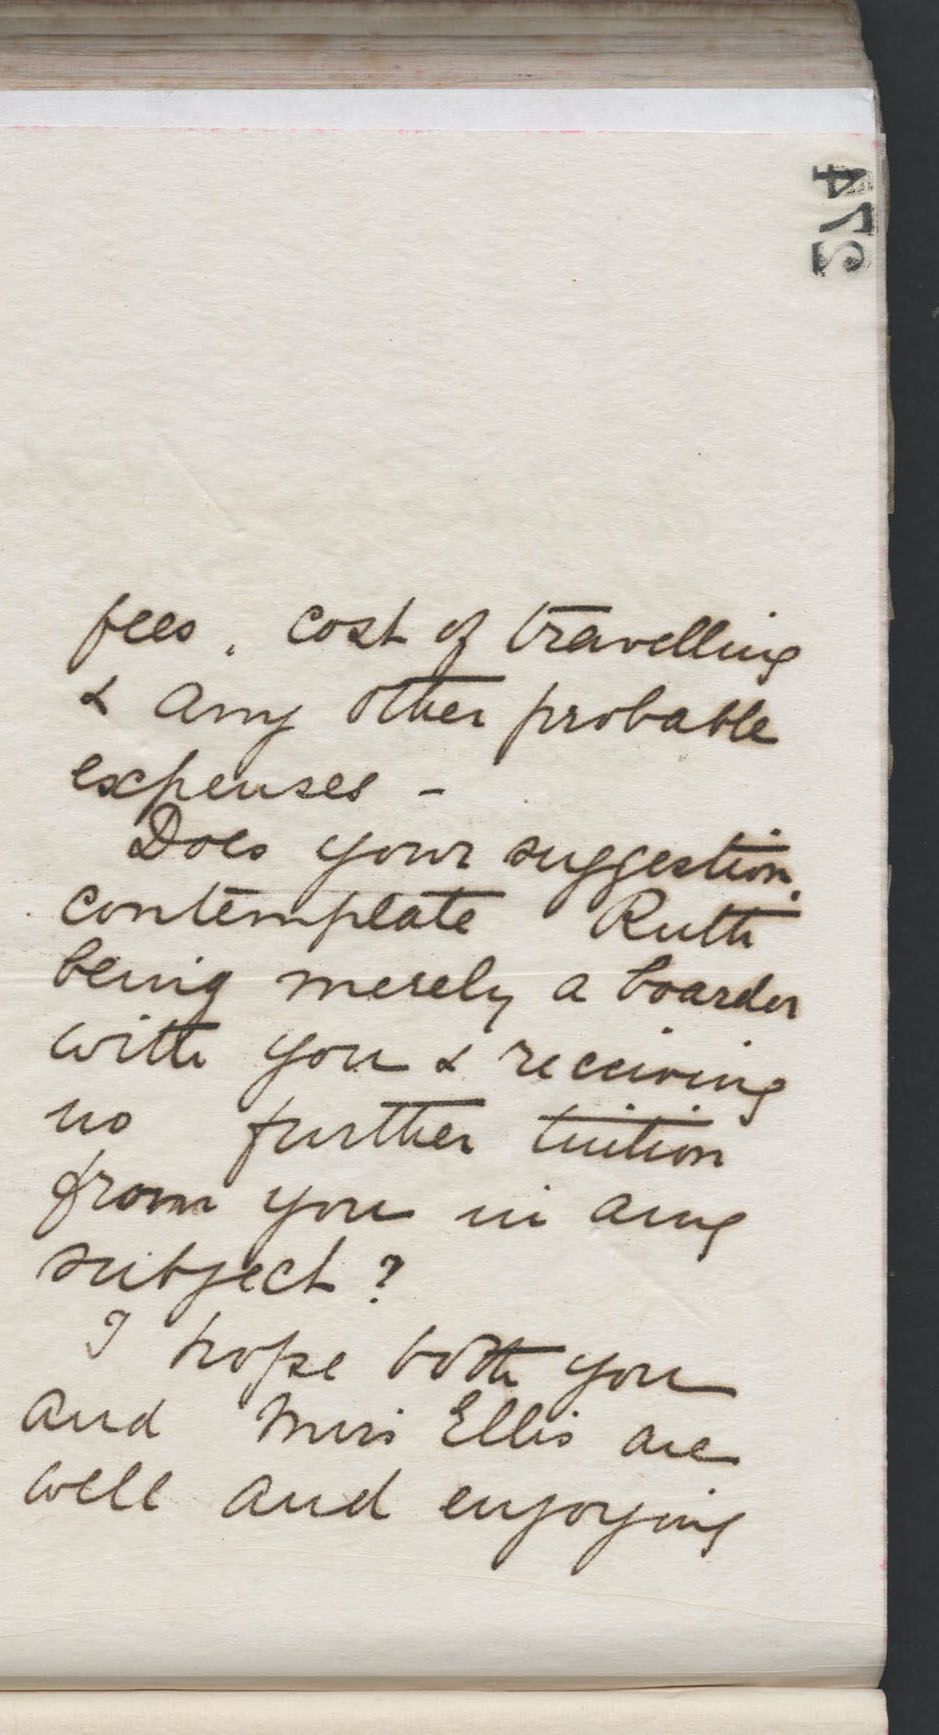 472
fees, cost of travelling
& any other probable
expenses -
Does your suggestion
contemplate Ruth
being merely a boarder
with you & receiving
no further tuition
from you in any
subject?
I hope both you
and Miss Ellis are
well and enjoying